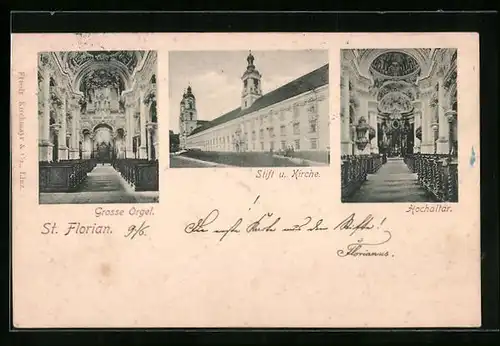 Friedr. Kirchmayr & Co., Linz.
Stift u. Kirche.
Grosse Orgel.
Hochaltar.
St. Florian. 9/6.
Die erste Karte aus dem Stifte!
Florianus.